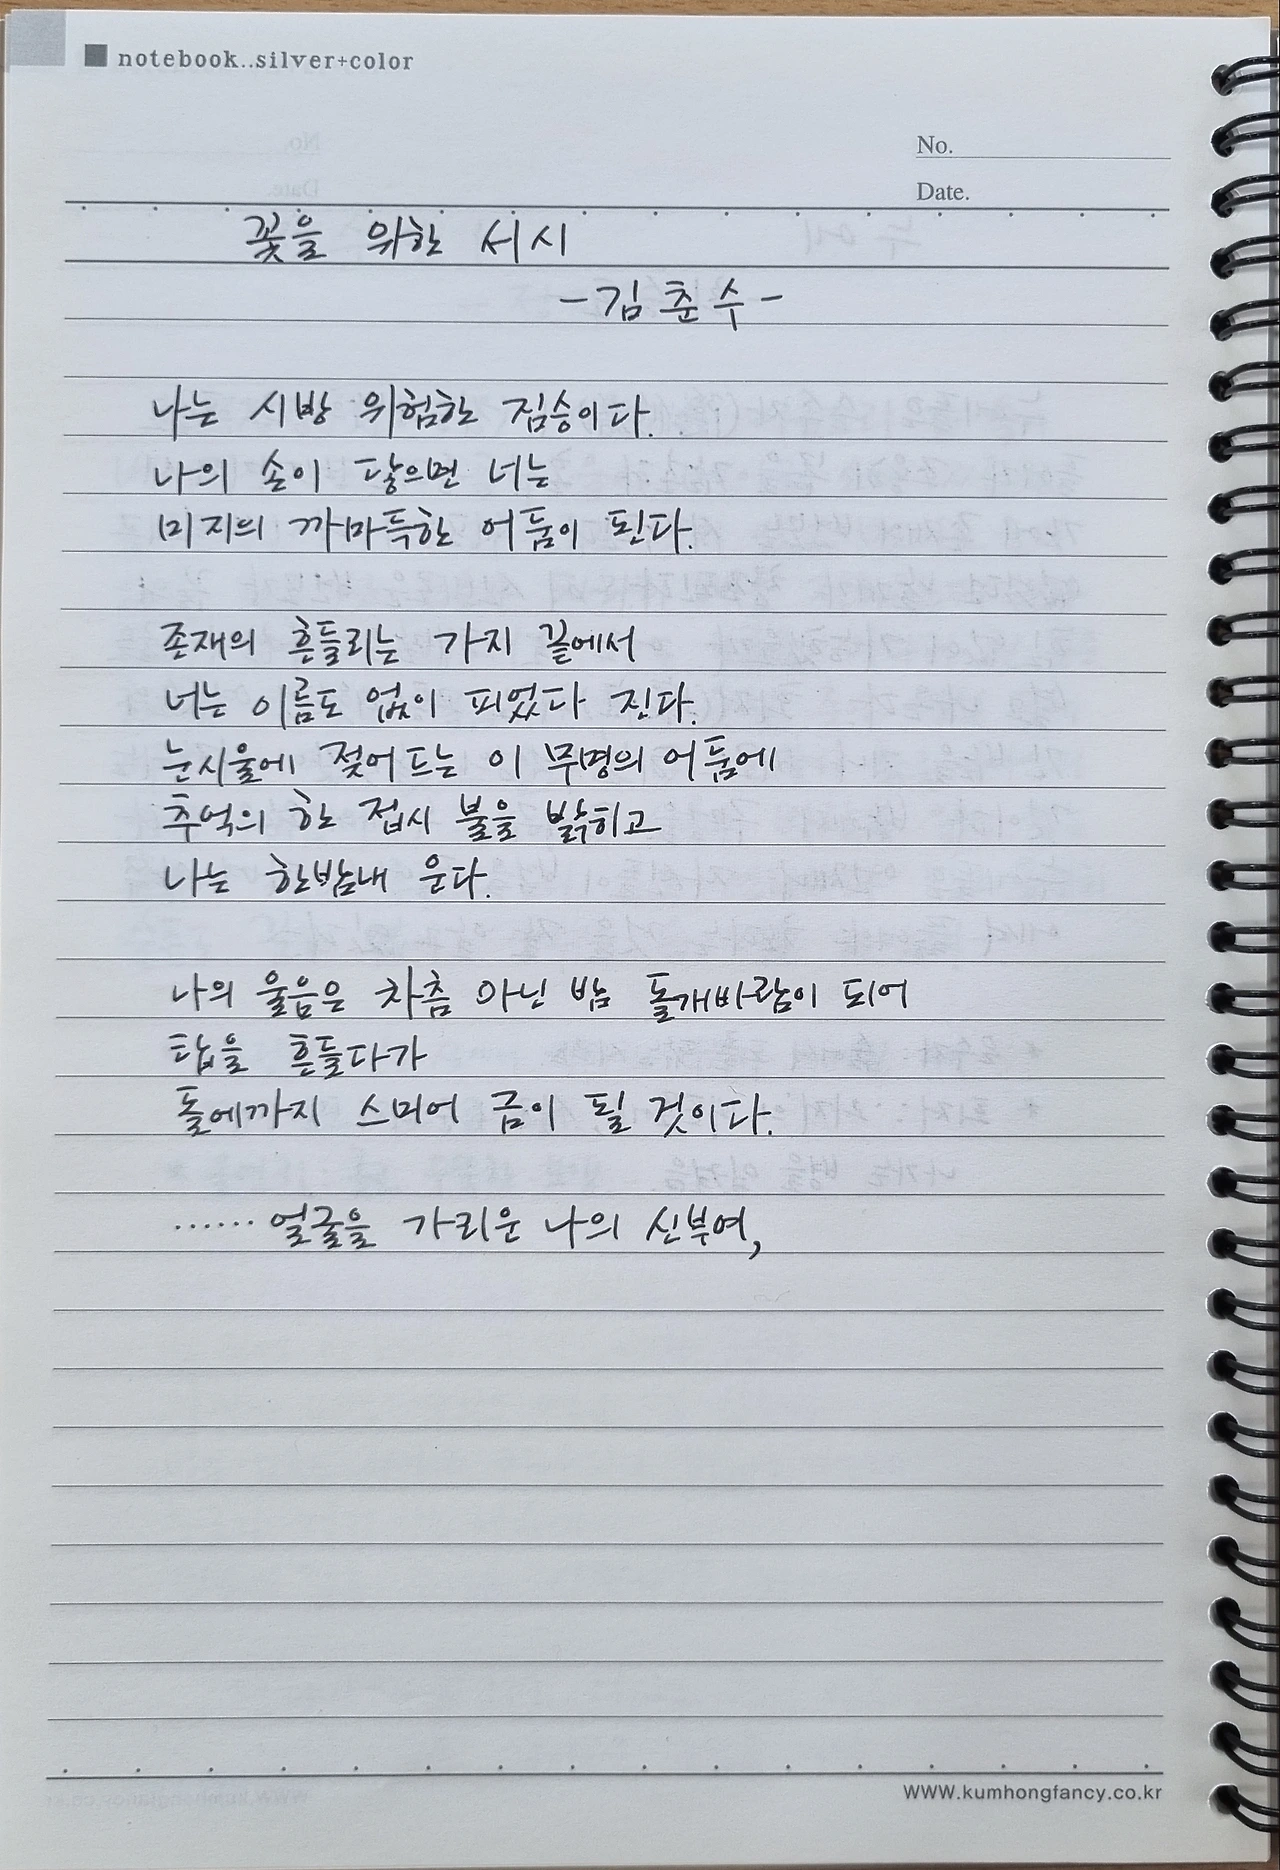 notebook..silver+color
No.
Date.
꽃을 위한 서시
-김춘수-
나는 시방 위험한 짐승이다.
나의 손이 닿으면 너는
미지의 까마득한 어둠이 된다.
존재의 흔들리는 가지 끝에서
너는 이름도 없이 피었다 진다.
눈시울에 젖어드는 이 무명의 어둠에
추억의 한 접시 불을 밝히고
나는 한밤내 운다.
나의 울음은 차츰 아닌 밤 돌개바람이 되어
탑을 흔들다가
돌에까지 스미어 금이 될 것이다.
…… 얼굴을 가리운 나의 신부여,
www.kumhongfancy.co.kr